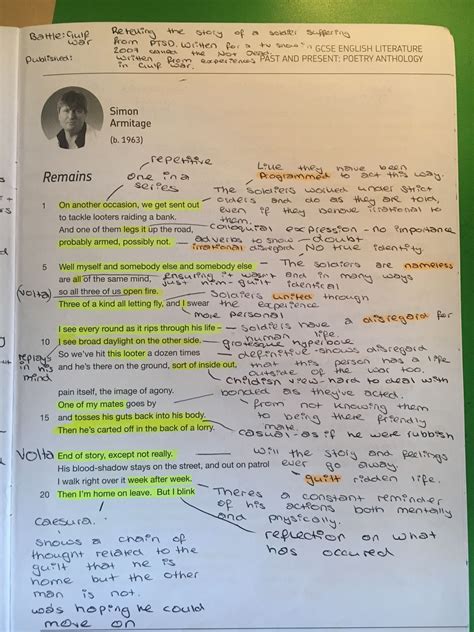 Battle: Gulf war
Retelling the story of a soldier suffering
from PTSD. Written for a tv show in
2007 called the Not Dead.
Published:
Written from experiences
in Gulf war.
GCSE ENGLISH LITERATURE
PAST AND PRESENT: POETRY ANTHOLOGY
Simon
Armitage
(b. 1963)
repetitive
one in a
series
Like they have been
programmed to act this way.
Remains
The soldiers worked under strict
orders and do as they are told,
even if they behave irrational to
them.
1 On another occasion, we get sent out
to tackle looters raiding a bank.
And one of them legs it up the road,
probably armed, possibly not.
colloquial expression - no importance
adverbs to show - doubt
irrational disregard No true identity.
5 Well myself and somebody else and somebody else
are all of the same mind,
so all three of us open fire.
Three of a kind all letting fly, and I swear
The soldiers are nameless
and in many ways
identical
ensuring it wasn't
just him - guilt
(Volta)
Soldiers united through
the experience
more personal
I see every round as it rips through his life –
10 I see broad daylight on the other side.
So we've hit this looter a dozen times
and he's there on the ground, sort of inside out,
soldiers have a disregard for
human life.
grotesque hyperbole
definitive - shows disregard
that this person has a life
outside of the war too.
replays
in his
mind
childish view - hard to deal with
bonded as they've acted.
pain itself, the image of agony.
One of my mates goes by
15 and tosses his guts back into his body.
Then he's carted off in the back of a lorry.
from not knowing them
to being there friendly
mate.
casual - as if he were rubbish
Volta
End of story, except not really.
His blood-shadow stays on the street, and out on patrol
I walk right over it week after week.
20 Then I'm home on leave. But I blink
will the story and feelings
ever go away.
guilt ridden life.
Theres a constant reminder
of his actions both mentally
and physically.
reflection on what
has occured
caesura.
shows a chain of
thought related to the
guilt that he is
home but the other
man is not.
was hoping he could
move on